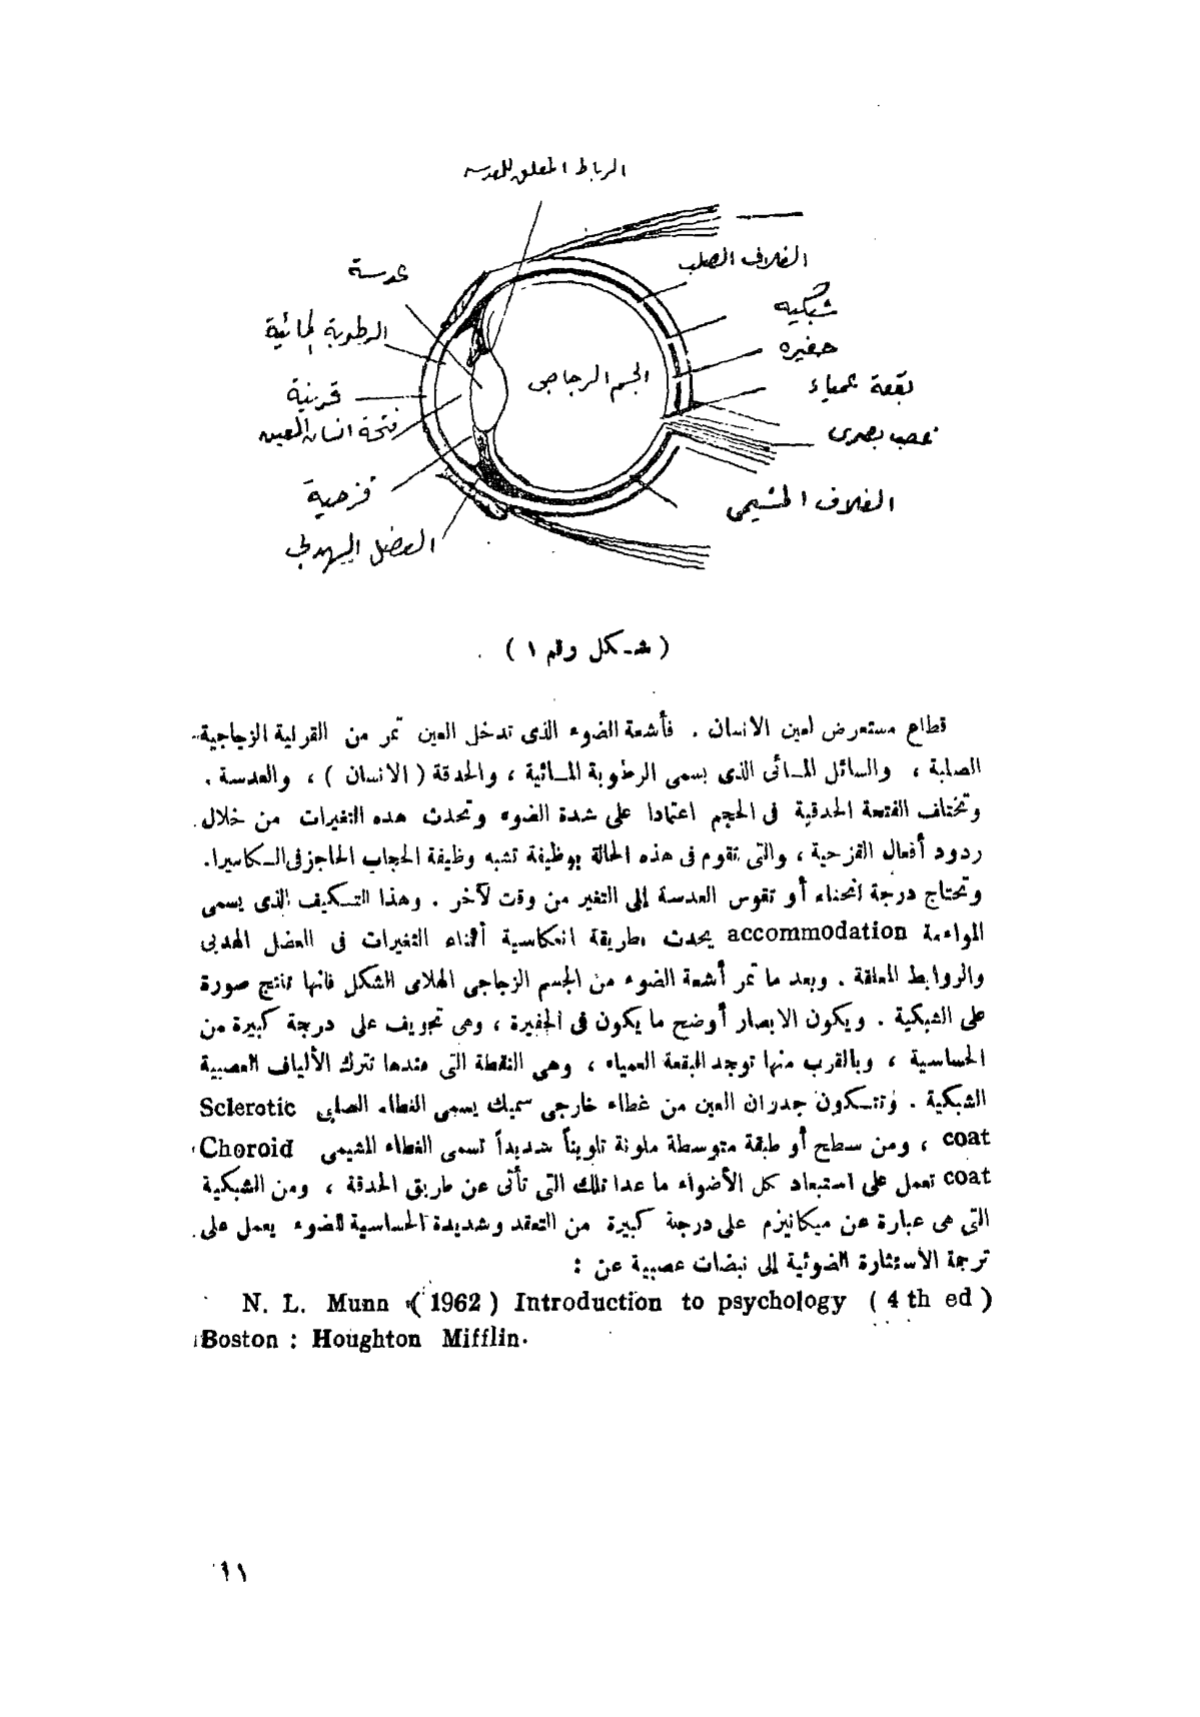 الرباط المعلق للعدسة
الغلاف الصلب
عدسة
شبكيه
الرطوبة المائية
حفيره
الجسم الزجاجى
بقعة عمياء
قرنية
عصب بصرى
فتحة انسان العين
قزحية
الغلاف المشيمى
العضل الهدبى
( شكل رقم ١ )
قطاع مستعرض لعين الانسان . فأشعة الضوء الذى تدخل العين تمر من القرنية الزجاجية
الصلبة ، والسائل المائى الذى يسمى الرطوبة المائية ، والحدقة ( الانسان ) ، والعدسة .
وتختلف الفتحة الحدقية فى الحجم اعتمادا على شدة الضوء وتحدث هذه التغيرات من خلال
ردود أفعال القزحية ، والتى تقوم فى هذه الحالة بوظيفة تشبه وظيفة الحجاب الحاجز فى الكاميرا.
وتحتاج درجة انحناء أو تقوس العدسة إلى التغير من وقت لآخر . وهذا التكيف الذى يسمى
المواءمة accommodation يحدث بطريقة انعكاسية أثناء التغيرات فى العضل الهدبى
والروابط المعلقة . وبعد ما تمر أشعة الضوء من الجسم الزجاجى الهلامى الشكل فانها تنتج صورة
على الشبكية . ويكون الابصار أوضح ما يكون فى الحفيرة ، وهى تجويف على درجة كبيرة من
الحساسية ، وبالقرب منها توجد البقعة العمياء ، وهى النقطة التى عندها تترك الألياف العصبية
الشبكية . وتتكون جدران العين من غطاء خارجى سميك يسمى الغطاء الصلبى Sclerotic
coat ، ومن سطح أو طبقة متوسطة ملونة تلويناً شديداً تسمى الغطاء المشيمى Choroid
coat تعمل على استبعاد كل الأضواء ما عدا تلك التى تأتى عن طريق الحدقة ، ومن الشبكية
التى هى عبارة عن ميكانيزم على درجة كبيرة من التعقد وشديدة الحساسية للضوء يعمل على
ترجمة الاستثارة الضوئية إلى نبضات عصبية عن :
N. L. Munn ( 1962 ) Introduction to psychology ( 4 th ed )
Boston : Houghton Mifflin.
١١